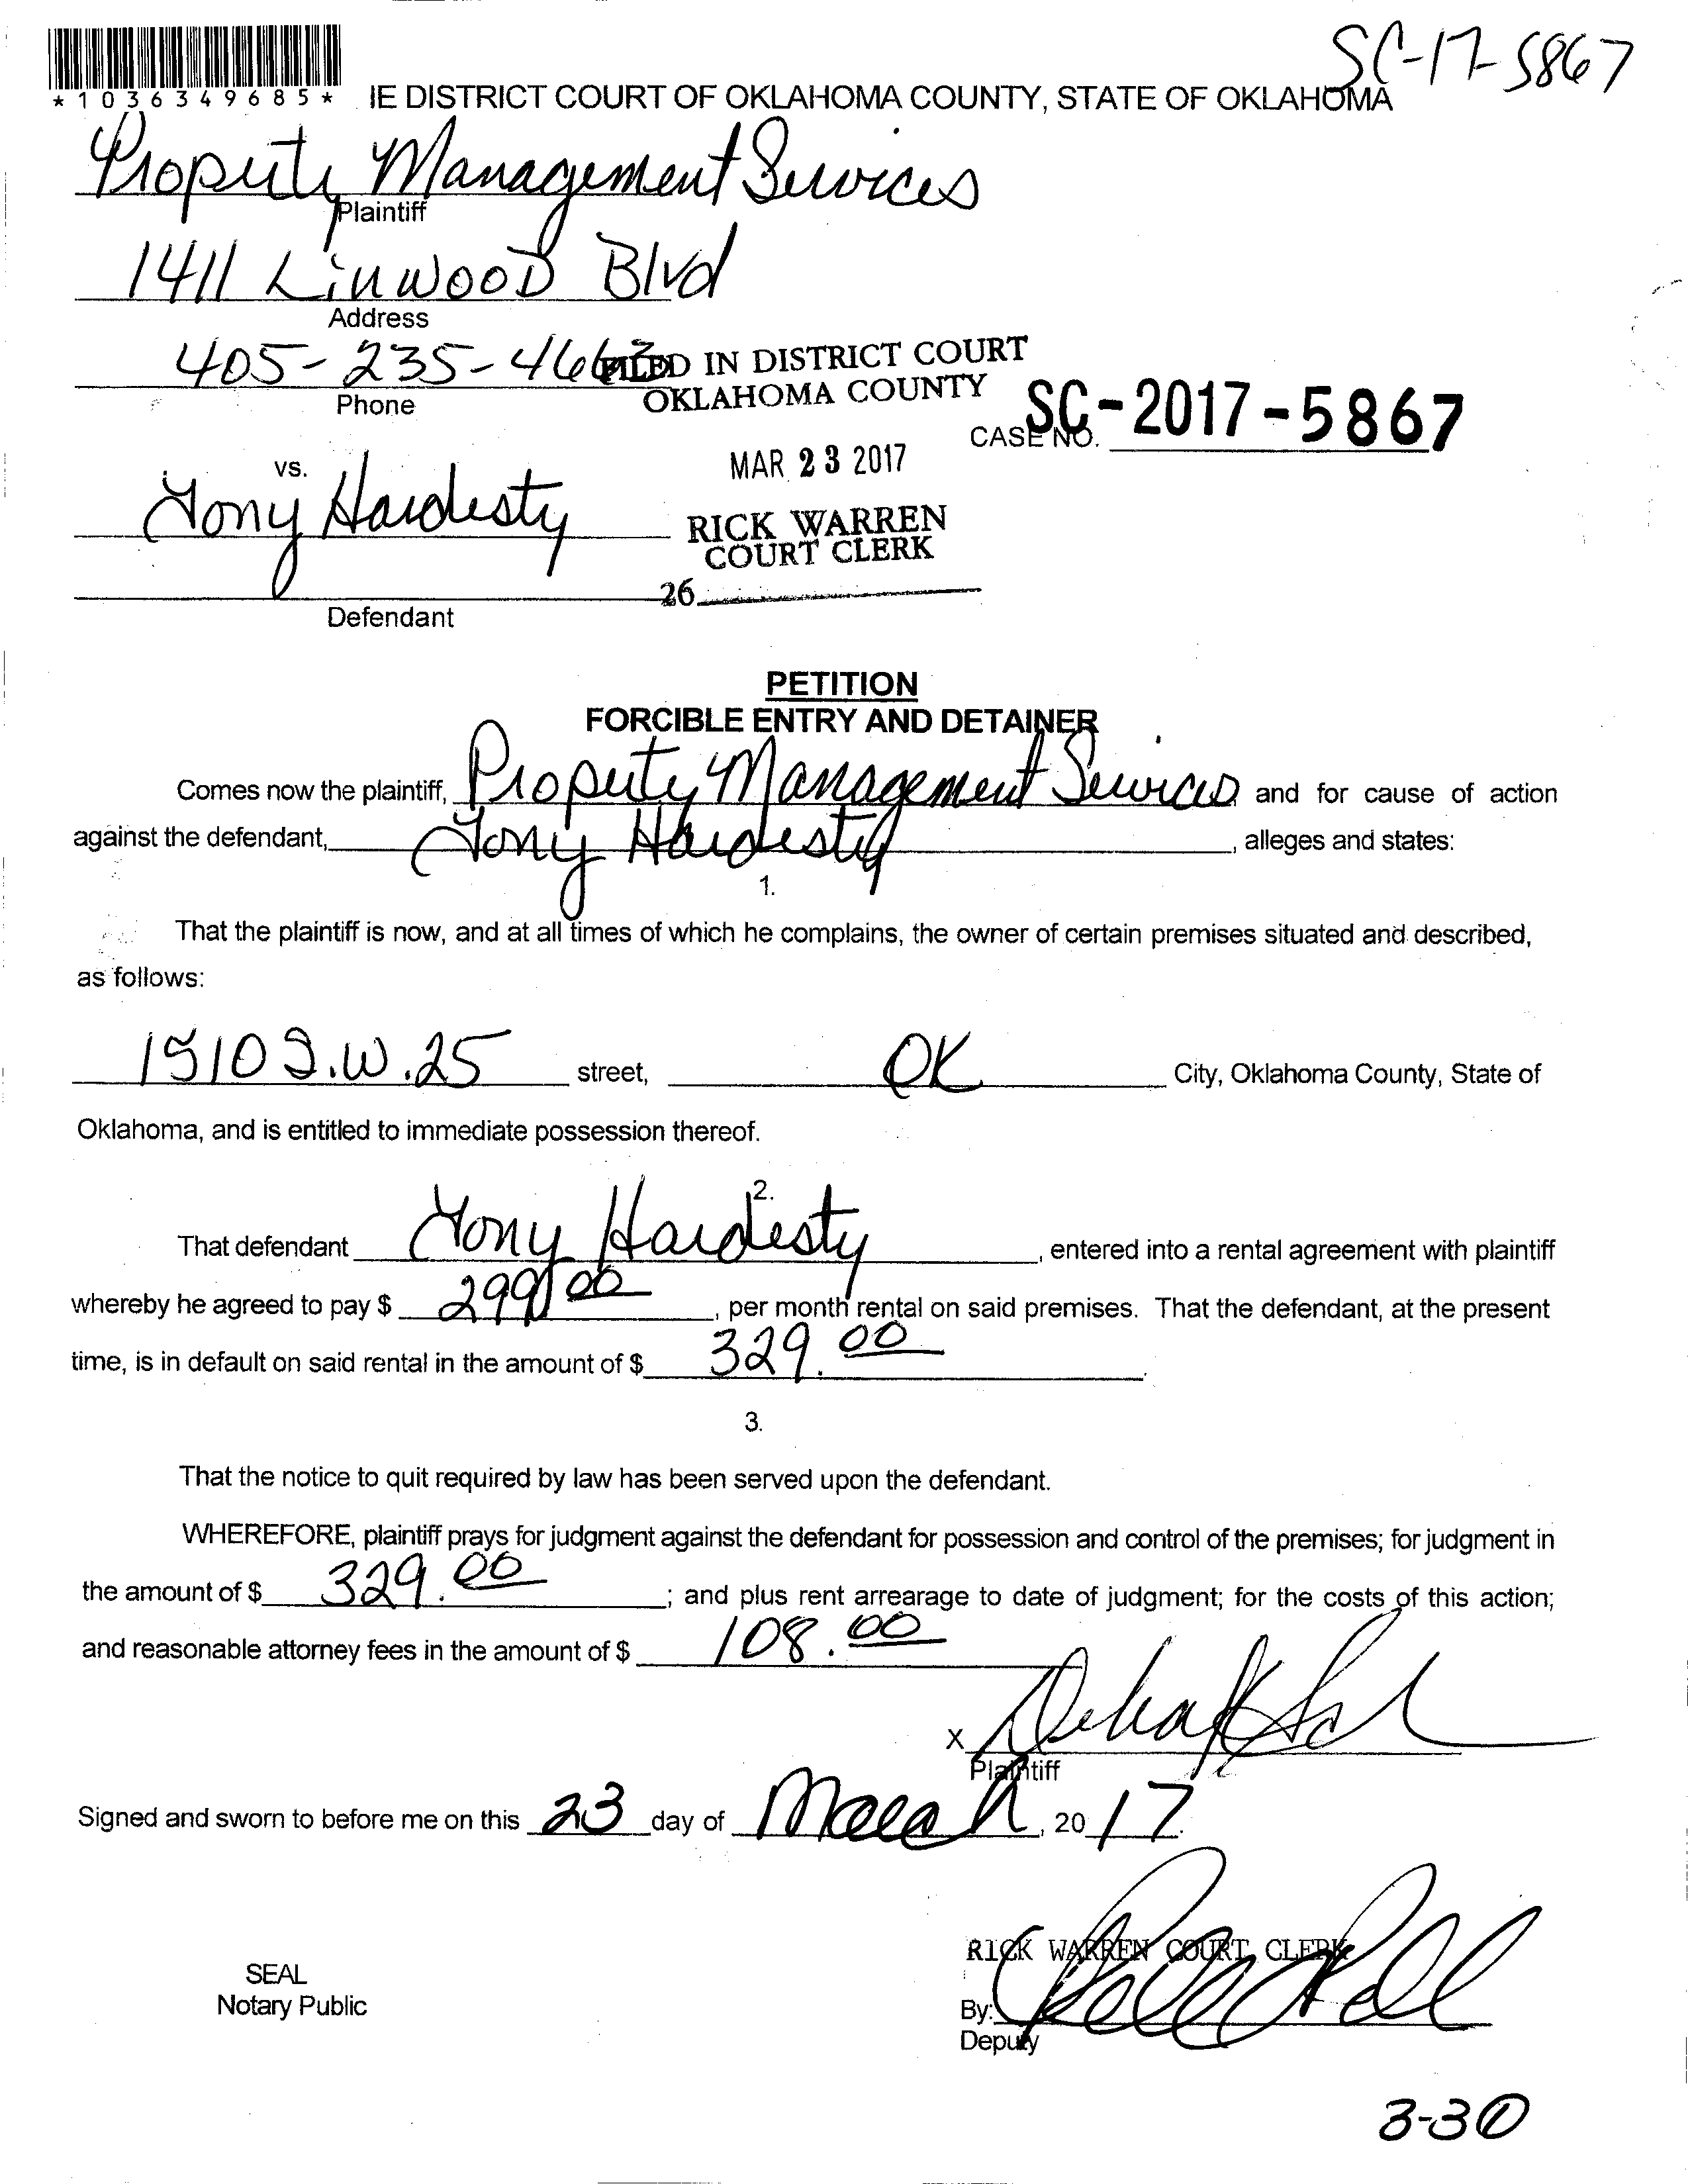 SC-17-5867
*1036349685*
IE DISTRICT COURT OF OKLAHOMA COUNTY, STATE OF OKLAHOMA
Property Management Services
Plaintiff
1411 Linwood Blvd
Address
405-235-4663
Phone
FILED IN DISTRICT COURT
OKLAHOMA COUNTY
CASE NO. SC-2017-5867
MAR 23 2017
vs.
Tony Hardesty
RICK WARREN
COURT CLERK
26
Defendant
PETITION
FORCIBLE ENTRY AND DETAINER
Comes now the plaintiff, Property Management Services and for cause of action
against the defendant, Tony Hardesty, alleges and states:
1.
That the plaintiff is now, and at all times of which he complains, the owner of certain premises situated and described,
as follows:
1510 S.W. 25 street, OK City, Oklahoma County, State of
Oklahoma, and is entitled to immediate possession thereof.
2.
That defendant Tony Hardesty, entered into a rental agreement with plaintiff
whereby he agreed to pay $ 299.00, per month rental on said premises. That the defendant, at the present
time, is in default on said rental in the amount of $ 329.00.
3.
That the notice to quit required by law has been served upon the defendant.
WHEREFORE, plaintiff prays for judgment against the defendant for possession and control of the premises; for judgment in
the amount of $ 329.00; and plus rent arrearage to date of judgment; for the costs of this action;
and reasonable attorney fees in the amount of $ 108.00
X
Plaintiff
Signed and sworn to before me on this 23 day of March, 2017.
RICK WARREN COURT CLERK
SEAL
Notary Public
By:
Deputy
3-30